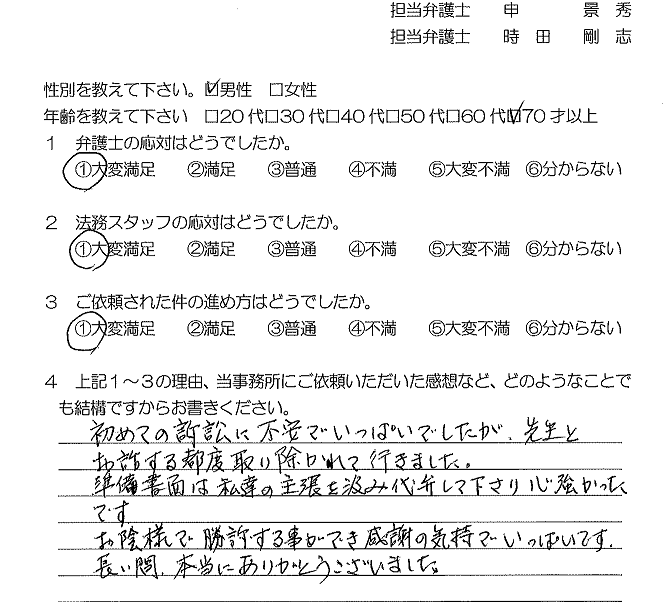 担当弁護士 申 景 秀
担当弁護士 時 田 剛 志
性別を教えて下さい。☑男性 □女性
年齢を教えて下さい □20代□30代□40代□50代□60代☑70才以上
1 弁護士の応対はどうでしたか。
①大変満足 ②満足 ③普通 ④不満 ⑤大変不満 ⑥分からない
2 法務スタッフの応対はどうでしたか。
①大変満足 ②満足 ③普通 ④不満 ⑤大変不満 ⑥分からない
3 ご依頼された件の進め方はどうでしたか。
①大変満足 ②満足 ③普通 ④不満 ⑤大変不満 ⑥分からない
4 上記1～3の理由、当事務所にご依頼いただいた感想など、どのようなことで
も結構ですからお書きください。
初めての訴訟に不安でいっぱいでしたが、先生と
お話する都度取り除かれて行きました。
準備書面は私達の主張を汲み代弁して下さり心強かった
です
お陰様で勝訴する事ができ感謝の気持でいっぱいです。
長い間、本当にありがとうございました。